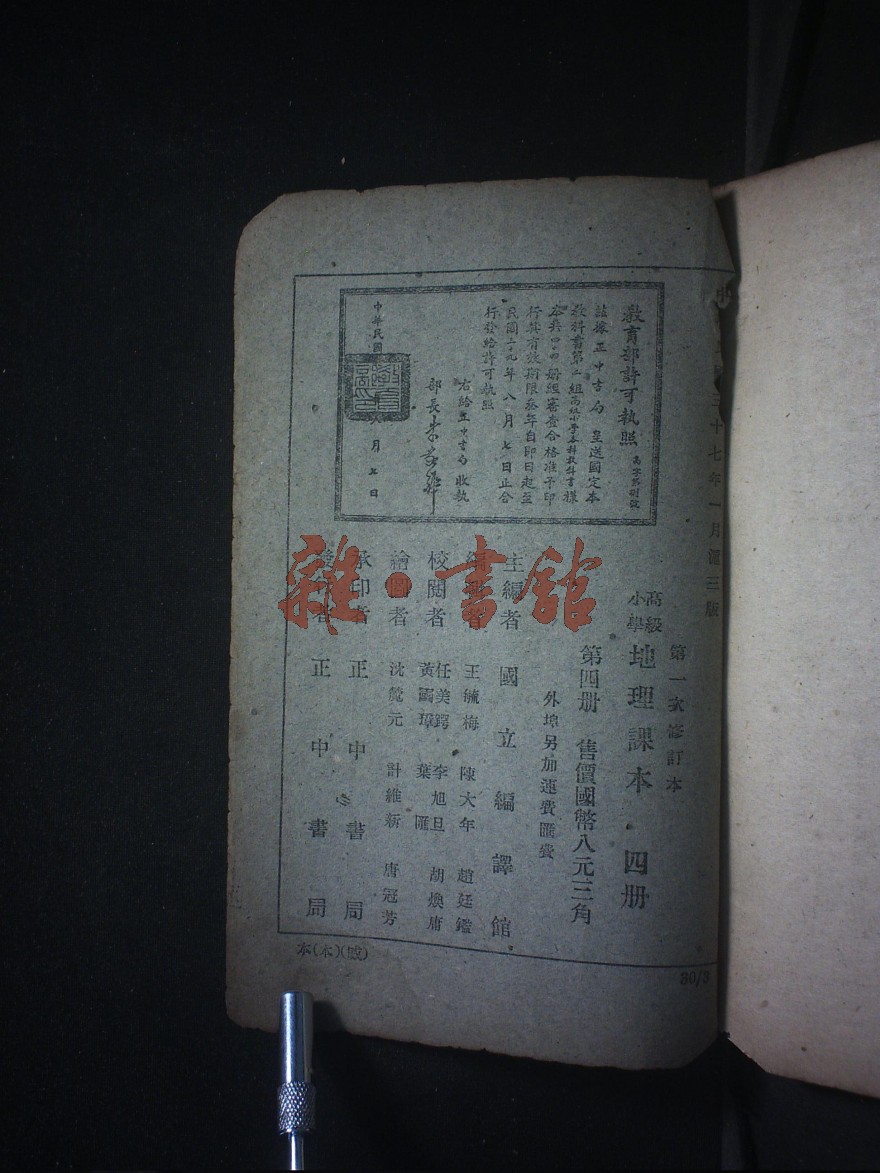 三十七年一月滬三版
教育部許可執照
茲據正中書局 呈送國定本
教科書第二組高級小學各科教科書樣
本共四四册經審查合格准予印
行其有效期限叁年自卽日起至
民國二九年八月七日止合
行發給許可執照
右給正中書局收執
部長朱家驊
中華民國
月七日
第一次修訂本
高級小學 地理課本 四册
第四册 售價國幣八元三角
外埠另加運費匯費
主編者 國立編譯館
王毓梅 陳大年 趙廷鑑
校閱者 任美鍔 李旭旦 胡煥庸
黃國璋 葉匯
繪圖者 沈 元 計維新 唐冠芳
承印者 正中書局
正中書局
本(木)(戚)
30/3
雜·書館